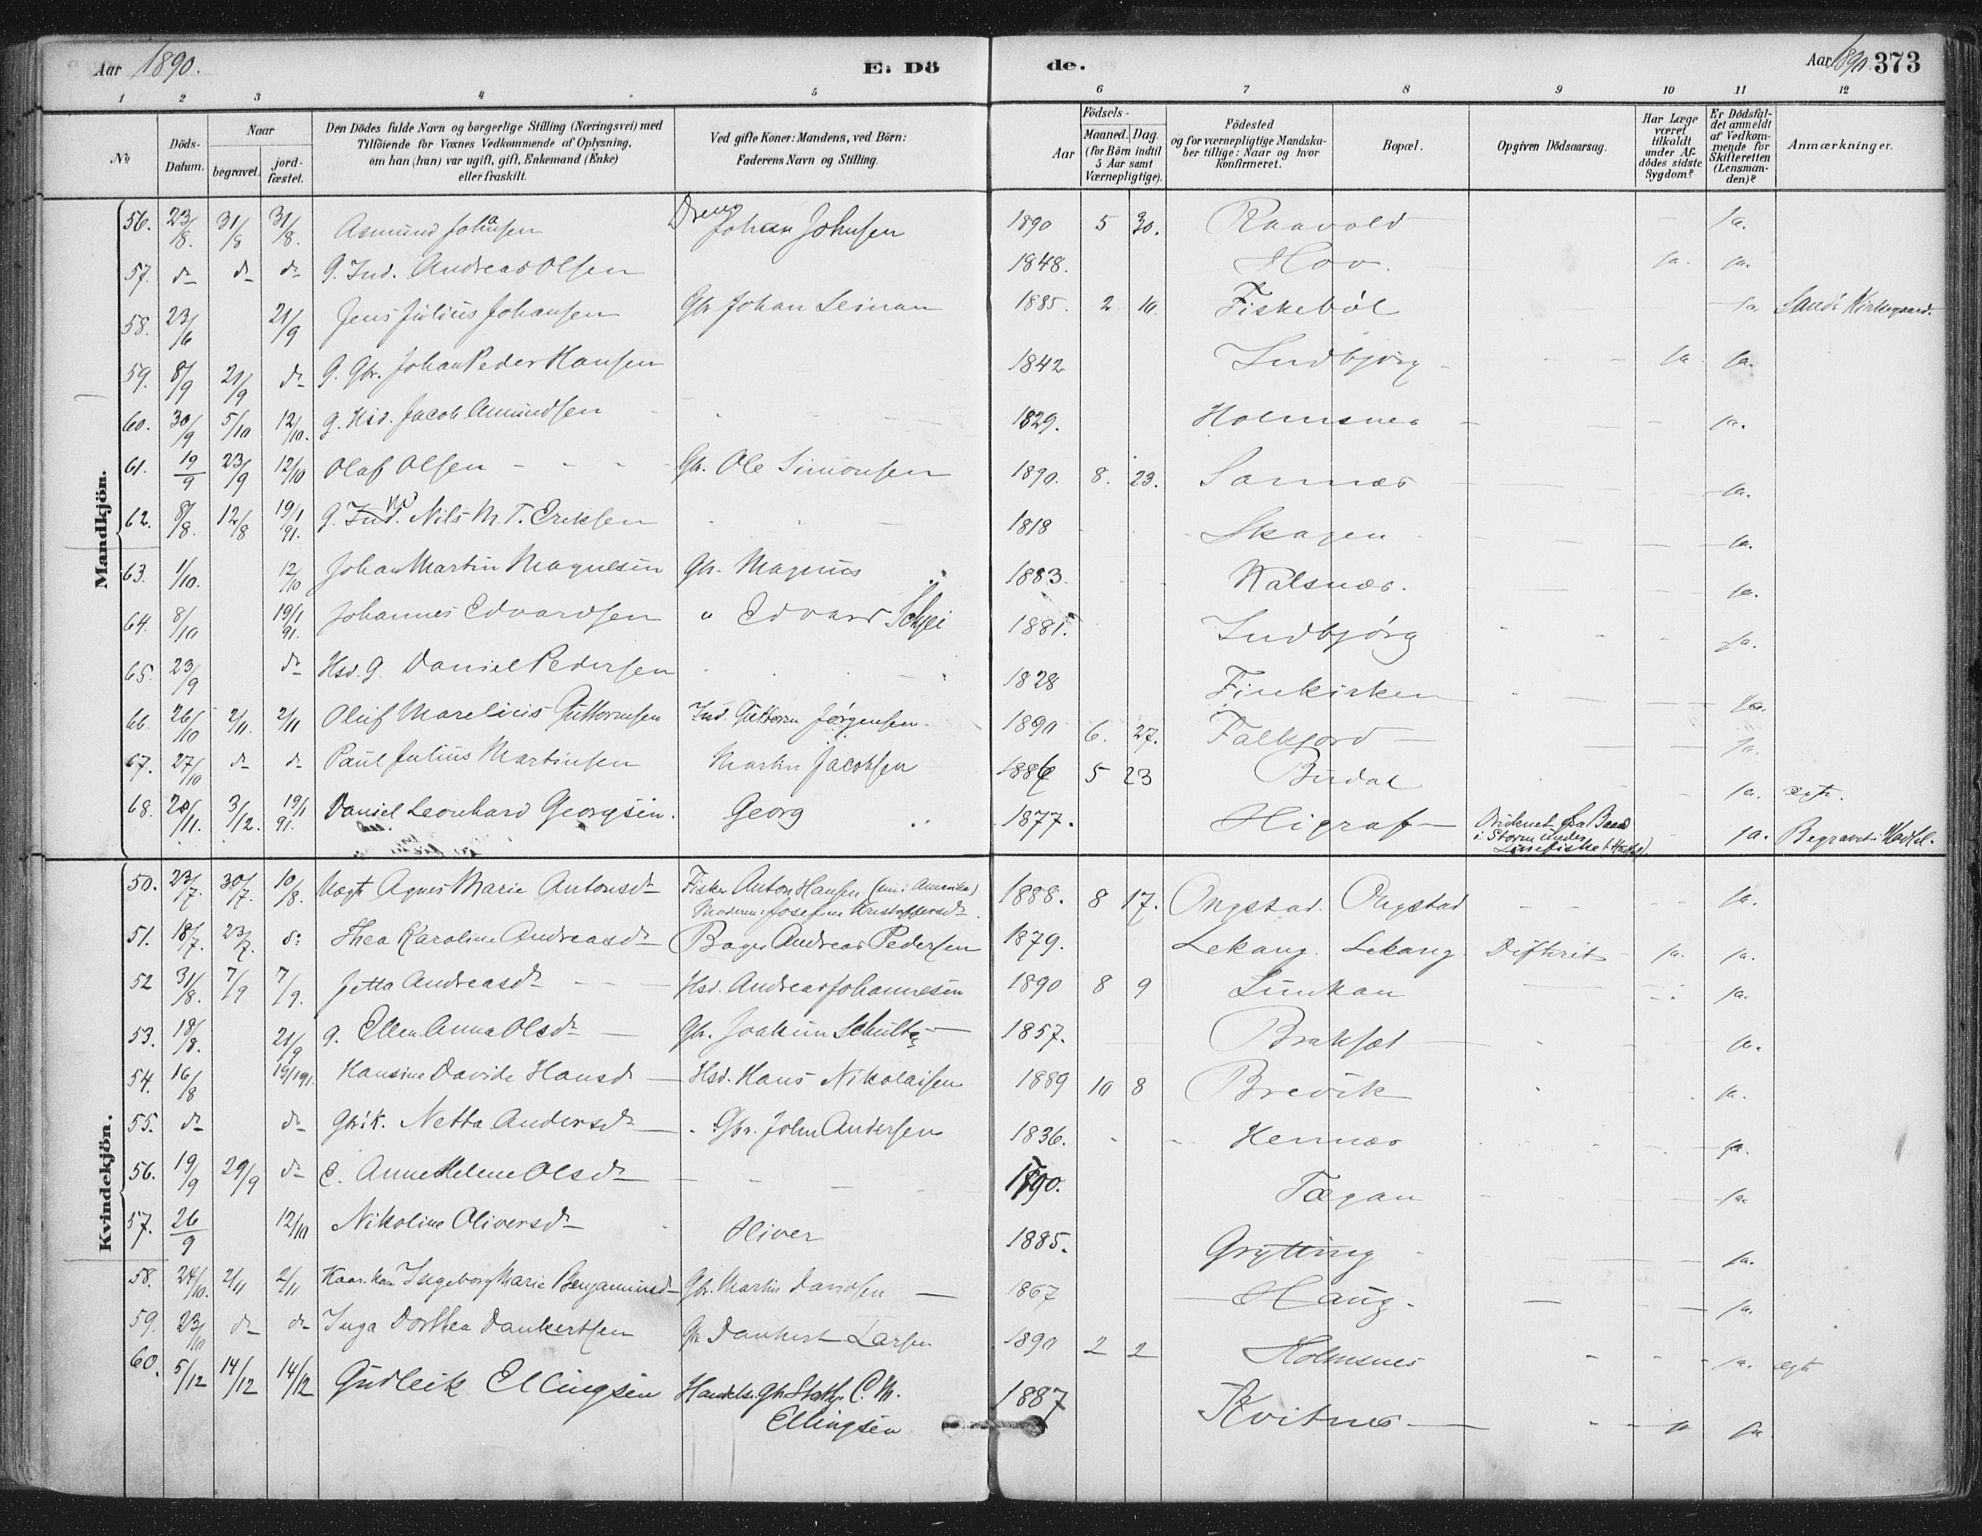 Aar 1890. E. Dö de. Aar 1890. 373
1 2 3 4 5 6 7 8 9 10 11 12
No
Döds-Datum.
Naar
begravet.
jord-fæstet.
Den Dödes fulde Navn og borgerlige Stilling (Næringsvei) med
Tilföiende for Voxnes Vedkommende af Oplysning,
om han (hun) var ugift, gift, Enkemand (Enke)
eller fraskilt.
Ved gifte Koner: Mandens, ved Börn:
Faderens Navn og Stilling.
Födsels-
Aar
Maaned. Dag.
(for Börn indtil
5 Aar samt
Værnepligtige).
Födested
og for værnepligtige Mandska-
ber tillige: Naar og hvor
konfirmeret.
Bopæl.
Opgiven Dödsaarsag.
Har Læge
været
tilkaldt
under Af-
dödes sidste
Sygdom?
Er Dödsfal-
det anmeldt
af Vedkom-
mende for
Skifteretten
(Lensman-
den)?
Anmærkninger.
Mandkjön.
56. 23/8. 31/8 31/8. Asmund Johansen Dreng Johan Johnsen 1890 5 30. Raavold – ja.
57. d– d– d– G. Ind. Andreas Olsen 1848. Hov. ja. ja.
58. 23/6 21/9 Jens Julius Johansen Gbr. Johan Leinan 1885. 2 10. Fiskebøl ja. Sands Kirkegaard.
59. 8/9 21/9 d– G. Gbr. Johan Peder Hansen 1842 Indbjørg ja ja.
60. 30/9 5/10 12/10. g. Hsd. Jacob Amundsen 1829. Holmsnes ja.
61. 19/9 23/9 12/10 Olaf Olsen Gbr. Ole Simonsen 1890. 8. 23. Sannes ja.
62. 8/8. 12/8 19/1 91. g. Ind. Nils M. T. Eriksen 1818 Skagen ja.
63. 1/10. 12/10 Johan Martin Magnesen Gbr. Magnus 1883. Kalsnes. ja.
64. 8/10 19/1 91. Johannes Edvardsen " Edvard Schjei 1881. Indbjørg ja.
65. 23/9 d– Hsd. G. Daniel Pedersen 1828 Finkirken ja.
66. 26/10 2/11. 2/11 Oluf Marelius Guttormsen Ind. Guttorm Jørgensen 1890 6. 27. Falkfjord – ja.
67. 27/10 d– d– Paul Julius Martinsen Martin Jacobsen 1886 5 23 Budal ja. ægte.
68. 20/11. 3/12. 19/1 91. Daniel Leonhard Georgsen. Georg 1877. Higraf – Druknet fra Baad
i Storm under
Linefiske ja. Begravet i Hadsel.
Kvindekjön.
50. 23/7. 30/7. 10/8. Uægt Agnes Marie Antonsd– Fisker Anton Hansen (nu i Amerika)
Moderen: Josefine Kristoffersd–. 1888. 8 17. Ongstad. Ongstad ja.
51. 18/7. 23/7. d: Thea Karoline Andreasd– Bager Andreas Pedersen 1879. Lekang. Lekang Difterit ja. ja.
52 31/8. 7/9 7/9. Jetta Andreasd– Hsd. Andreas Johannesen 1890 8 9 Sunkan ja.
53. 18/8. 21/9 g. Ellen Anna Olsd– Gbr. Joakim Schultz 1857. Braksæt ja.
54. 16/8 19/1 91. Hansine Davide Hansd Hsd. Hans Nikolaisen 1889 10 8 Brevik ja.
55. d– d– Gbr. k. Netta Andersd– Gbr. John Andersen 1836. Hennes ja.
56. 19/9 29/9 d– E. Anne Helene Olsd– 1790. Tægan ja.
57. 26/9 12/10 Nikoline Oliversd– Oliver 1885. Grytting ja.
58. 24/10. 2/11 2/11 Ingeborg Marie Benjaminsd– Gbr. Martin Davidsen – 1867 Haug. ja.
59. 23/10 d– d– Inga Dorthea Dankertsen Gbr Dankert Larsen 1890 2 2 Holmsnes ja. ægte
60. 5/12 14/12 14/12 Gudleik Ellingsen Handels. C. M.
Ellingsen 1887 Kvitnes ja ja